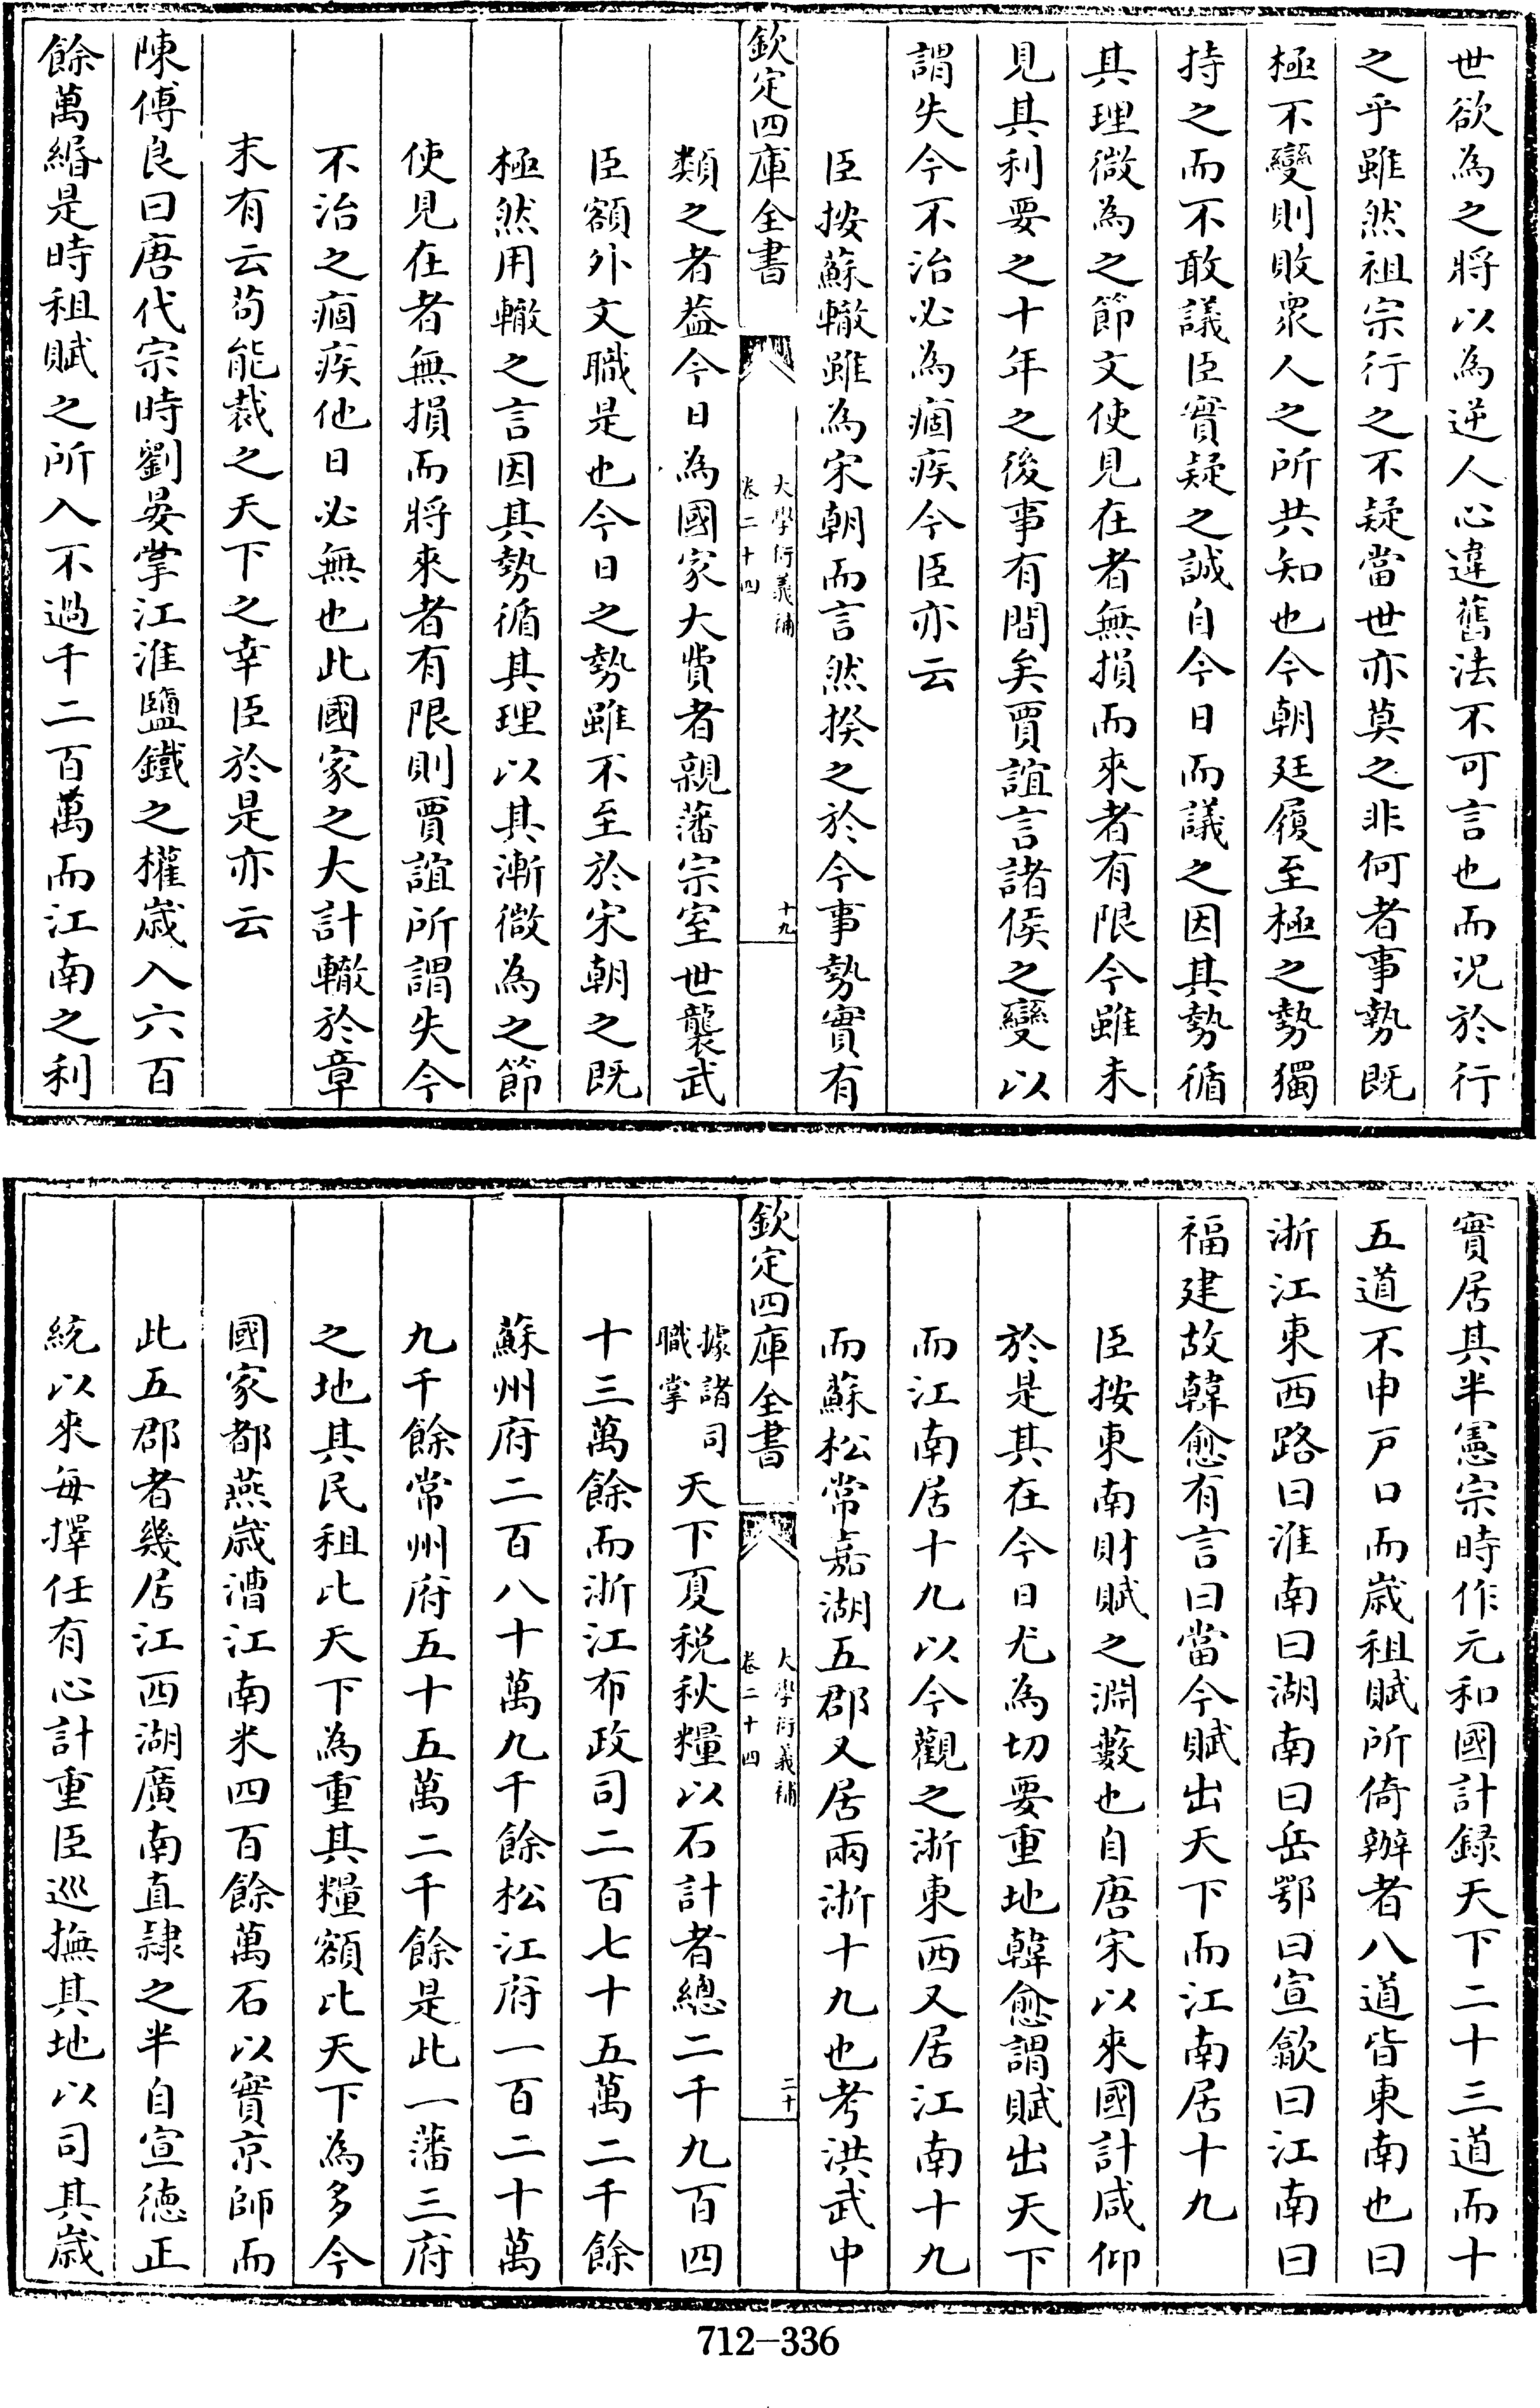 世欲為之將以為逆人心違舊法不可言也而况於行
之乎雖然祖宗行之不疑當世亦莫之非何者事勢既
極不變則敗衆人之所共知也今朝廷履至極之勢獨
持之而不敢議臣實疑之誠自今日而議之因其勢循
其理微為之節文使見在者無損而來者有限今雖未
見其利要之十年之後事有間矣賈誼言諸侯之變以
謂失今不治必為痼疾今臣亦云
臣按蘇轍雖為宋朝而言然揆之於今事勢實有
欽定四庫全書
大學衍義補
卷二十四
十九
類之者葢今日為國家大費者親藩宗室世襲武
臣額外文職是也今日之勢雖不至於宋朝之既
極然用轍之言因其勢循其理以其漸微為之節
使見在者無損而將來者有限則賈誼所謂失今
不治之痼疾他日必無也此國家之大計轍於章
末有云茍能裁之天下之幸臣於是亦云
陳傅良曰唐代宗時劉晏掌江淮鹽鐵之權嵗入六百
餘萬緡是時租賦之所入不過千二百萬而江南之利
實居其半憲宗時作元和國計録天下二十三道而十
五道不申戸口而嵗租賦所倚辦者八道皆東南也曰
浙江東西路曰淮南曰湖南曰岳鄂曰宣歙曰江南曰
福建故韓愈有言曰當今賦出天下而江南居十九
臣按東南財賦之淵藪也自唐宋以來國計咸仰
於是其在今日尤為切要重地韓愈謂賦出天下
而江南居十九以今觀之浙東西又居江南十九
而蘇松常嘉湖五郡又居兩浙十九也考洪武中
欽定四庫全書
大學衍義補
卷二十四
二十
據諸司
職掌
天下夏税秋糧以石計者總二千九百四
十三萬餘而浙江布政司二百七十五萬二千餘
蘇州府二百八十萬九千餘松江府一百二十萬
九千餘常州府五十五萬二千餘是此一藩三府
之地其民租比天下為重其糧額比天下為多今
國家都燕嵗漕江南米四百餘萬石以實京師而
此五郡者幾居江西湖廣南直隸之半自宣徳正
統以來每擇任有心計重臣巡撫其地以司其嵗
712-336